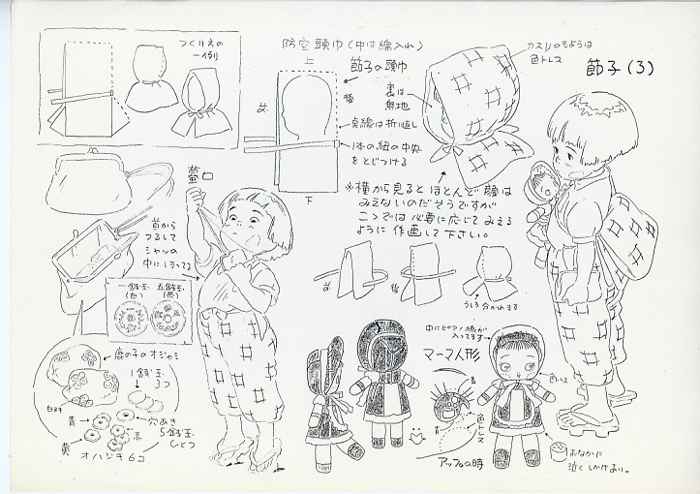 つくり方の
一例
防空頭巾(中は綿入れ)
上
節子の頭巾
前
後
点線は折り返し
1本の紐の中央
をとじつける
下
裏は
無地
カスリのもようは
色トレス
節子(3)
※横から見るとほとんど顔は
みえないのだそうですが
ここでは必要に応じてみえる
ように作画して下さい。
蟇口
首から
つるして
シャツの
中にしまってる
一銭玉
五銭玉
鹿の子のオジャミ
1銭玉
3つ
穴あき
5銭玉
ひとつ
青
黄
オハジキ6コ
前
後
うしろ分かれます
中にピアノ線が
入ってます
マーマ人形
色トレス
色トレス
アップの時
おなかに
泣くしかけあり。